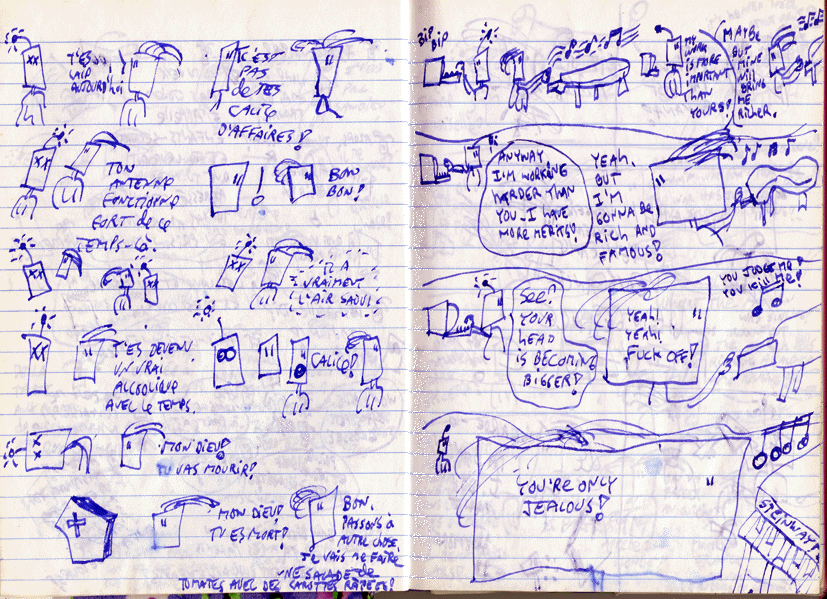 T'ES
LAID
AUJOURD'HUI
C'EST
PAS
de TES
CALICE
D'AFFAIRES!
TON
ANTENNE
FONCTIONNE
FORT de CE
TEMPS-LÀ.
!
BON
BON!
IL A
VRAIMENT
L'AIR SAOUL
T'ES DEVENU
UN VRAI
ALCOOLIQUE
AVEC LE TEMPS.
CALICE!
MON DIEU!
TU VAS MOURIR!
MON DIEU!
TU ES MORT!
BON.
PASSONS à
AUTRE CHOSE.
Je VAIS ME FAIRE
UNE SALADE de
TOMATES AVEC DES CAROTTES RÂPÉES!
BIP
BIP
MY
WORK
IS MORE
IMPORTANT
THAN
YOURS!
MAYBE
BUT
MINE
WILL
BRING
ME
RICHER.
ANYWAY.
I'M WORKING
HARDER THAN
YOU. I HAVE
MORE MERITS!
YEAH.
BUT
I'M
GONNA BE
RICH AND
FAMOUS!
SEE?
YOUR
HEAD
IS BECOMING
BIGGER!
YEAH!
YEAH!
FUCK OFF!
YOU JUDGE ME!
YOU KILL ME!
YOU'RE ONLY
JEALOUS!
STEINWAY